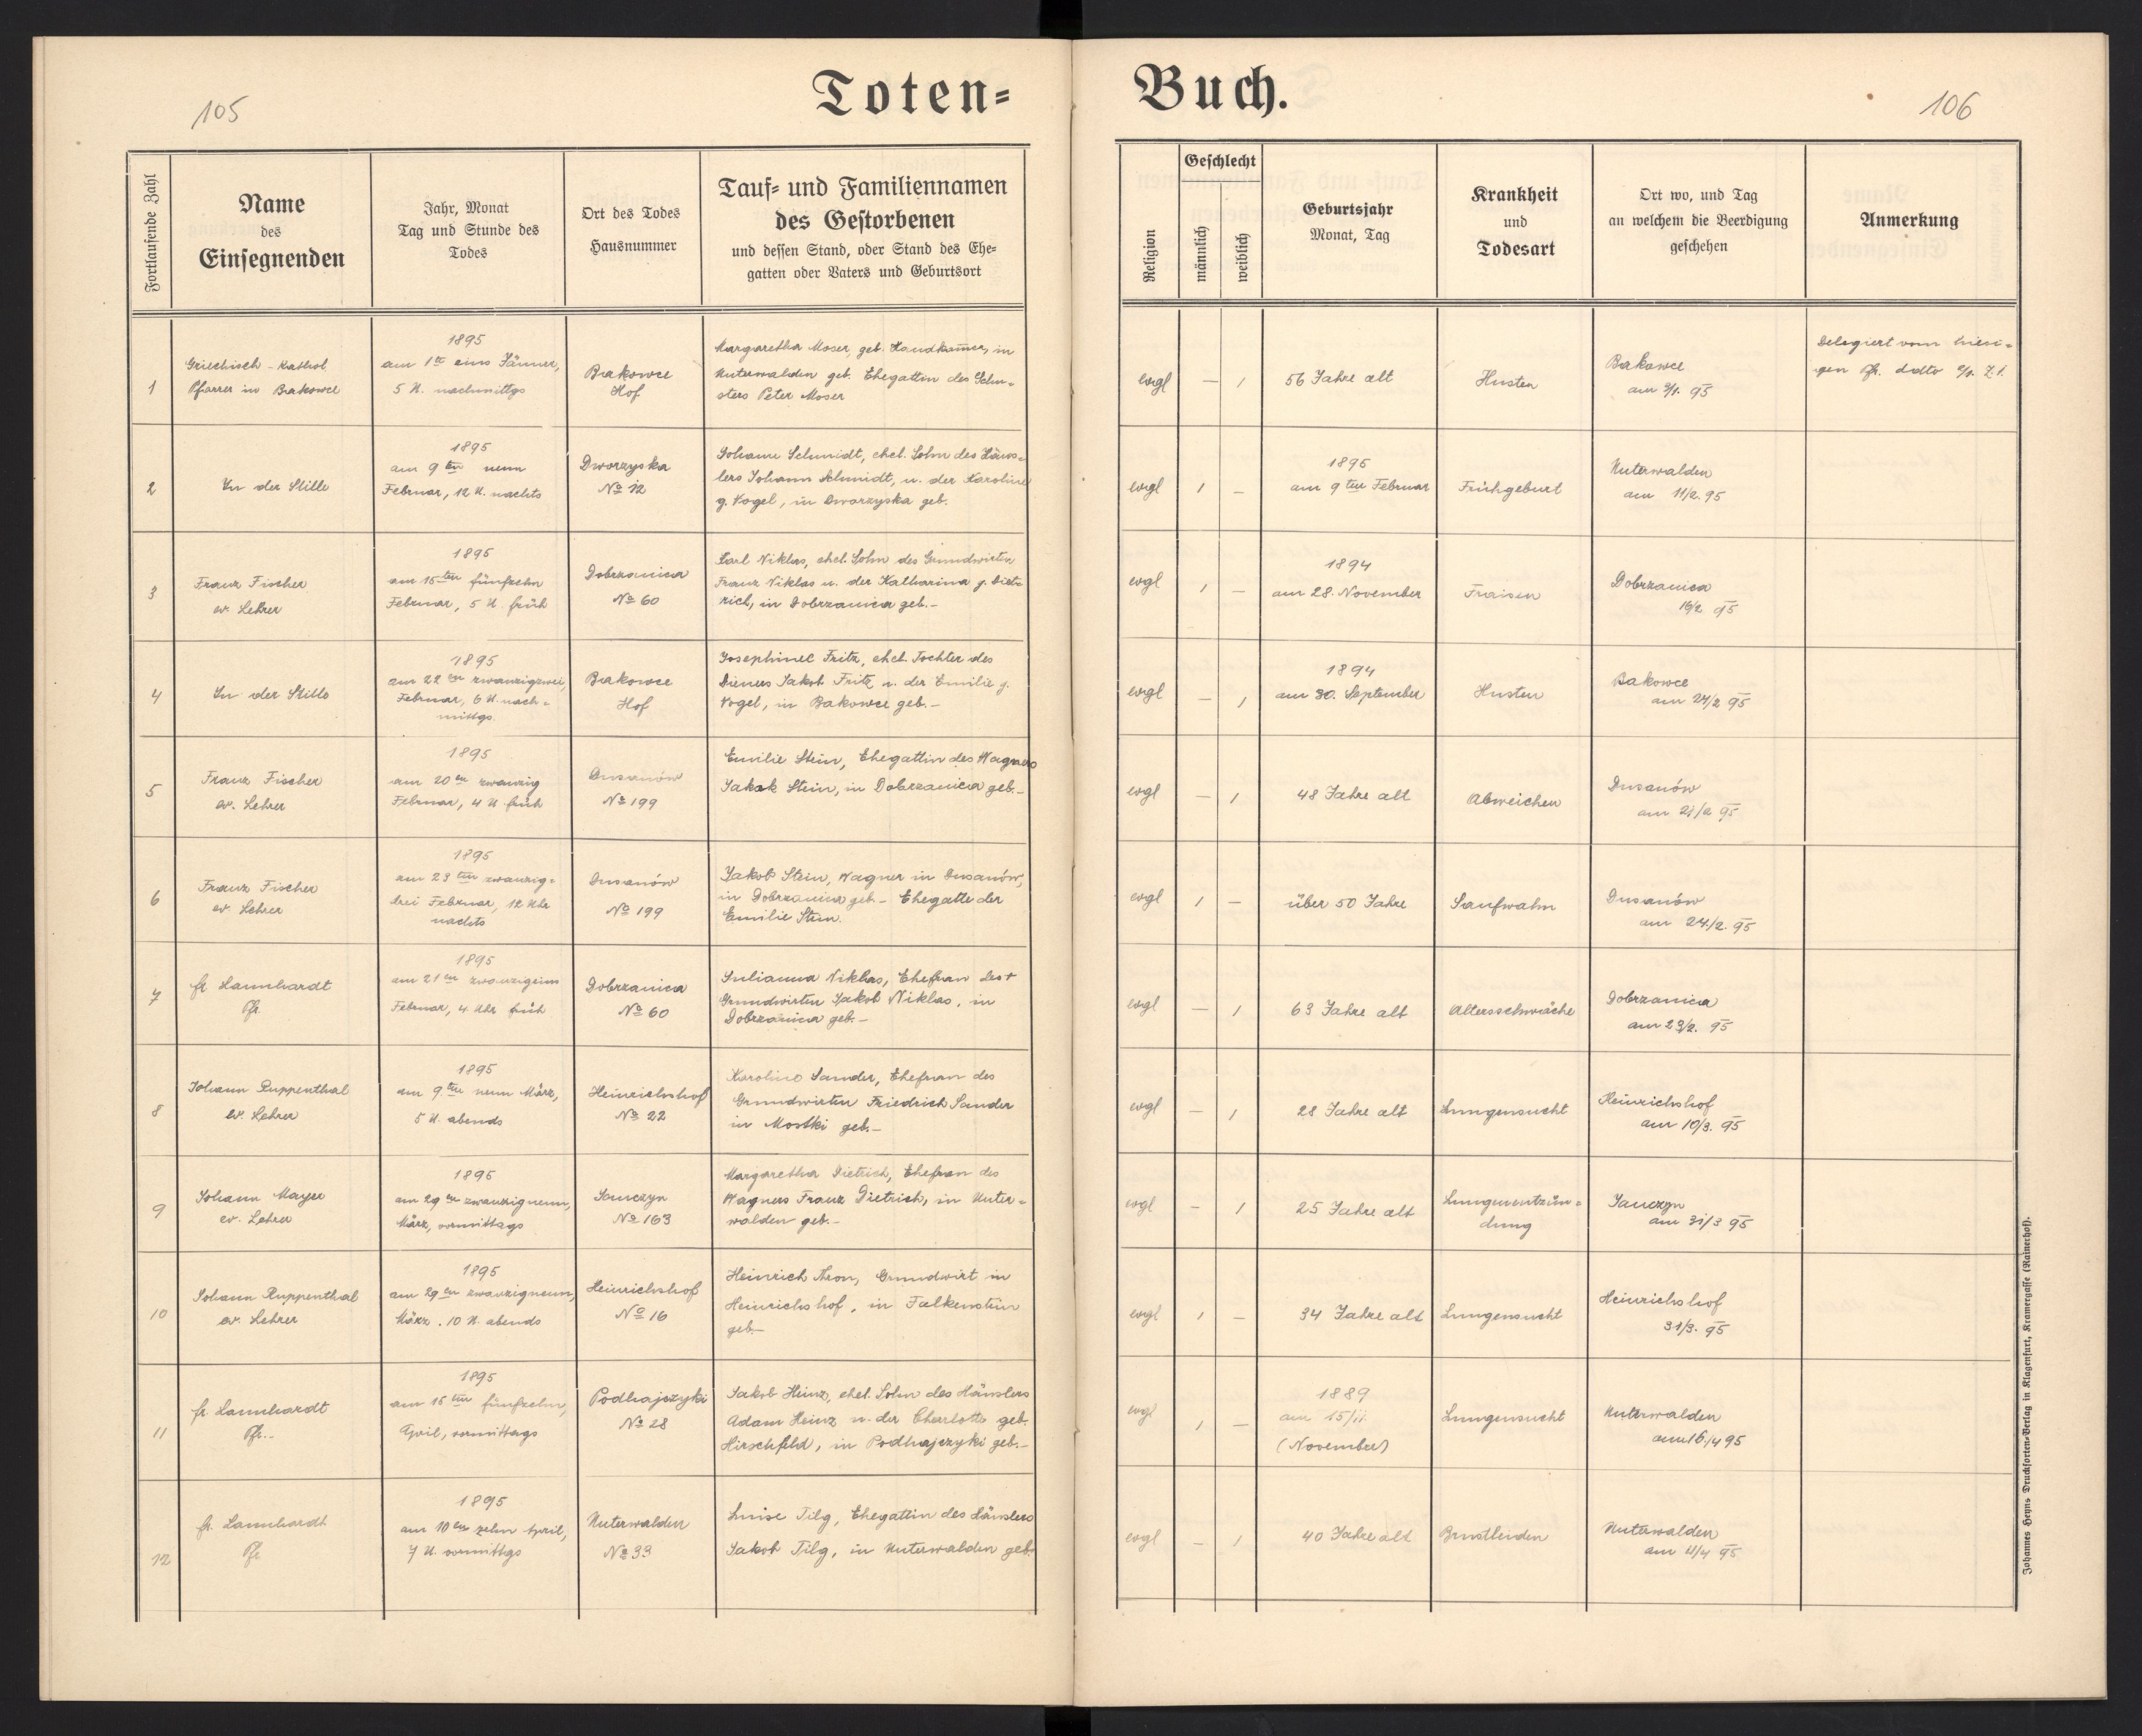 105
Toten=
Buch.
106
Fortlaufende Zahl
Name
des
Einsegnenden
Jahr, Monat
Tag und Stunde des
Todes
Ort des Todes
Hausnummer
Tauf= und Familiennamen
des Gestorbenen
und dessen Stand, oder Stand des Ehe=
gatten oder Vaters und Geburtsort
Religion
Geschlecht
männlich
weiblich
Geburtsjahr
Monat, Tag
Krankheit
und
Todesart
Ort wo, und Tag
an welchem die Beerdigung
geschehen
Anmerkung
1
Griechisch-Kathol
Pfarrer in Bakowce
1895
am 1ten eins Jänner,
5 U. nachmittgs
Bakowce
Hof
Margaretha Moser, geb. in
Unterwalden geb. Ehegattin des Schu=
sters Peter Moser
evgl
–
1
56 Jahre alt
Husten
Bakowce
am 3/1. 95
Delegiert vom hiesi=
gen Pfr. ddto
2
In der Stille
1895
am 9ten neun
Februar, 12 U. nachts
Dworzyska
No 12
Johann Schmidt, ehel. Sohn des Häus=
lers Johann Schmidt, u. der Karoline
g. Vogel, in Dworzyska geb.
evgl
1
–
1895
am 9ten Februar
Frühgeburt
Unterwalden
am 11/2. 95
3
Franz Fischer
ev. Lehrer
1895
am 15ten fünfzehn
Februar, 5 U. früh
Dobrzanica
No 60
Karl Niklas, ehel. Sohn des Grundwirten
Franz Niklas u. der Katharina g. Diet=
rich, in Dobrzanica geb.–
evgl
1
–
1894
am 28. November
Fraisen
Dobrzanica
16/2 95
4
In der Stille
1895
am 22ten zwanzigzwei,
Februar, 6 U. nach=
mittgs.
Bakowce
Hof
Josephine Fritz, ehel. Tochter des
Dieners Jakob Fritz u. der Emilie g.
Vogel, in Bakowce geb.–
evgl
–
1
1894
am 30. September
Husten
Bakowce
am 24/2 95
5
Franz Fischer
ev. Lehrer
1895
am 20ten zwanzig
Februar, 4 U. früh
Dusanów
No 199
Emilie Stein, Ehegattin des Wagners
Jakob Stein, in Dobrzanica geb.–
evgl
–
1
48 Jahre alt
Abweichen
Dusanów
am 21/2 95
6
Franz Fischer
ev. Lehrer
1895
am 23ten zwanzig=
drei Februar, 12 Uhr
nachts
Dusanów
No 199
Jakob Stein, Wagner in Dusanów,
in Dobrzanica geb– Ehegatte der
Emilie Stein.
evgl
1
–
über 50 Jahre
Saufwahn
Dusanów
am 24/2. 95
7
fr Lannhardt
Pfr.
1895
am 21ten zwanzigeins
Februar, 4 Uhr früh
Dobrzanica
No 60
Julianna Niklas, Ehefrau des +
Grundwirten Jakob Niklas, in
Dobrzanica geb.–
evgl
–
1
63 Jahre alt
Altersschwäche
Dobrzanica
am 23/2. 95
8
Johann Ruppenthal
ev. Lehrer
1895
am 9ten neun März,
5 U. abends
Heinrichshof
No 22
Karoline Sander, Ehefrau des
Grundwirten Friedrich Sander
in Mostki geb.–
evgl
–
1
28 Jahre alt
Lungensucht
Heinrichshof
am 10/3. 95
9
Johann Mayer
ev. Lehrer
1895
am 29ten zwanzigneun,
März, vormittags
Janczyn
No 163
Margaretha Dietrich, Ehefrau des
Wagners Franz Dietrich, in Unter=
walden geb.–
evgl
–
1
25 Jahre alt
Lungenentzün=
dung
Janczyn
am 31/3 95
10
Johann Ruppenthal
ev. Lehrer
1895
am 29ten zwanzigneun,
März. 10 U. abends
Heinrichshof
No 16
Heinrich Aron, Grundwirt in
Heinrichshof, in Falkenstein
geb–
evgl
1
–
34 Jahre alt
Lungensucht
Heinrichshof
31/3. 95
11
fr. Lannhardt
Pfr.–
1895
am 15ten fünfzehn,
April, vormittags
Podhajczyki
No 28
Jakob Heinz, ehel. Sohn des Häuslers
Adam Heinz u. der Charlotte geb.
Hirschfeld, in Podhajczyki geb.–
evgl
1
–
1889
am 15/11.
(November)
Lungensucht
Unterwalden
am 16./4 95
12
fr. Lannhardt
Pfr
1895
am 10ten zehn April,
7 U. vormittgs
Unterwalden
No 33
Luise Tilg, Ehegattin des Häuslers
Jakob Tilg, in Unterwalden geb.
evgl
–
1
40 Jahre alt
Brustleiden
Unterwalden
am 11/4 95
Johannes Heyns Drucksorten=Verlag in Klagenfurt, Kramergasse (Rainerhof).